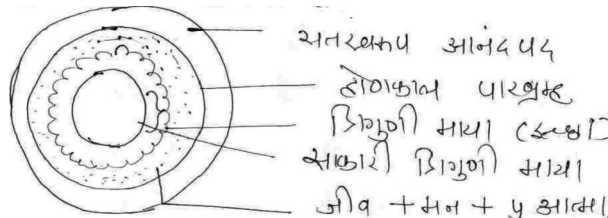 सतस्वरुप आनंदपद
होणकाल पारब्रम्ह
त्रिगुणी माया (इच्छा)
साकारी त्रिगुणी माया
जीव + मन + ५ आत्मा